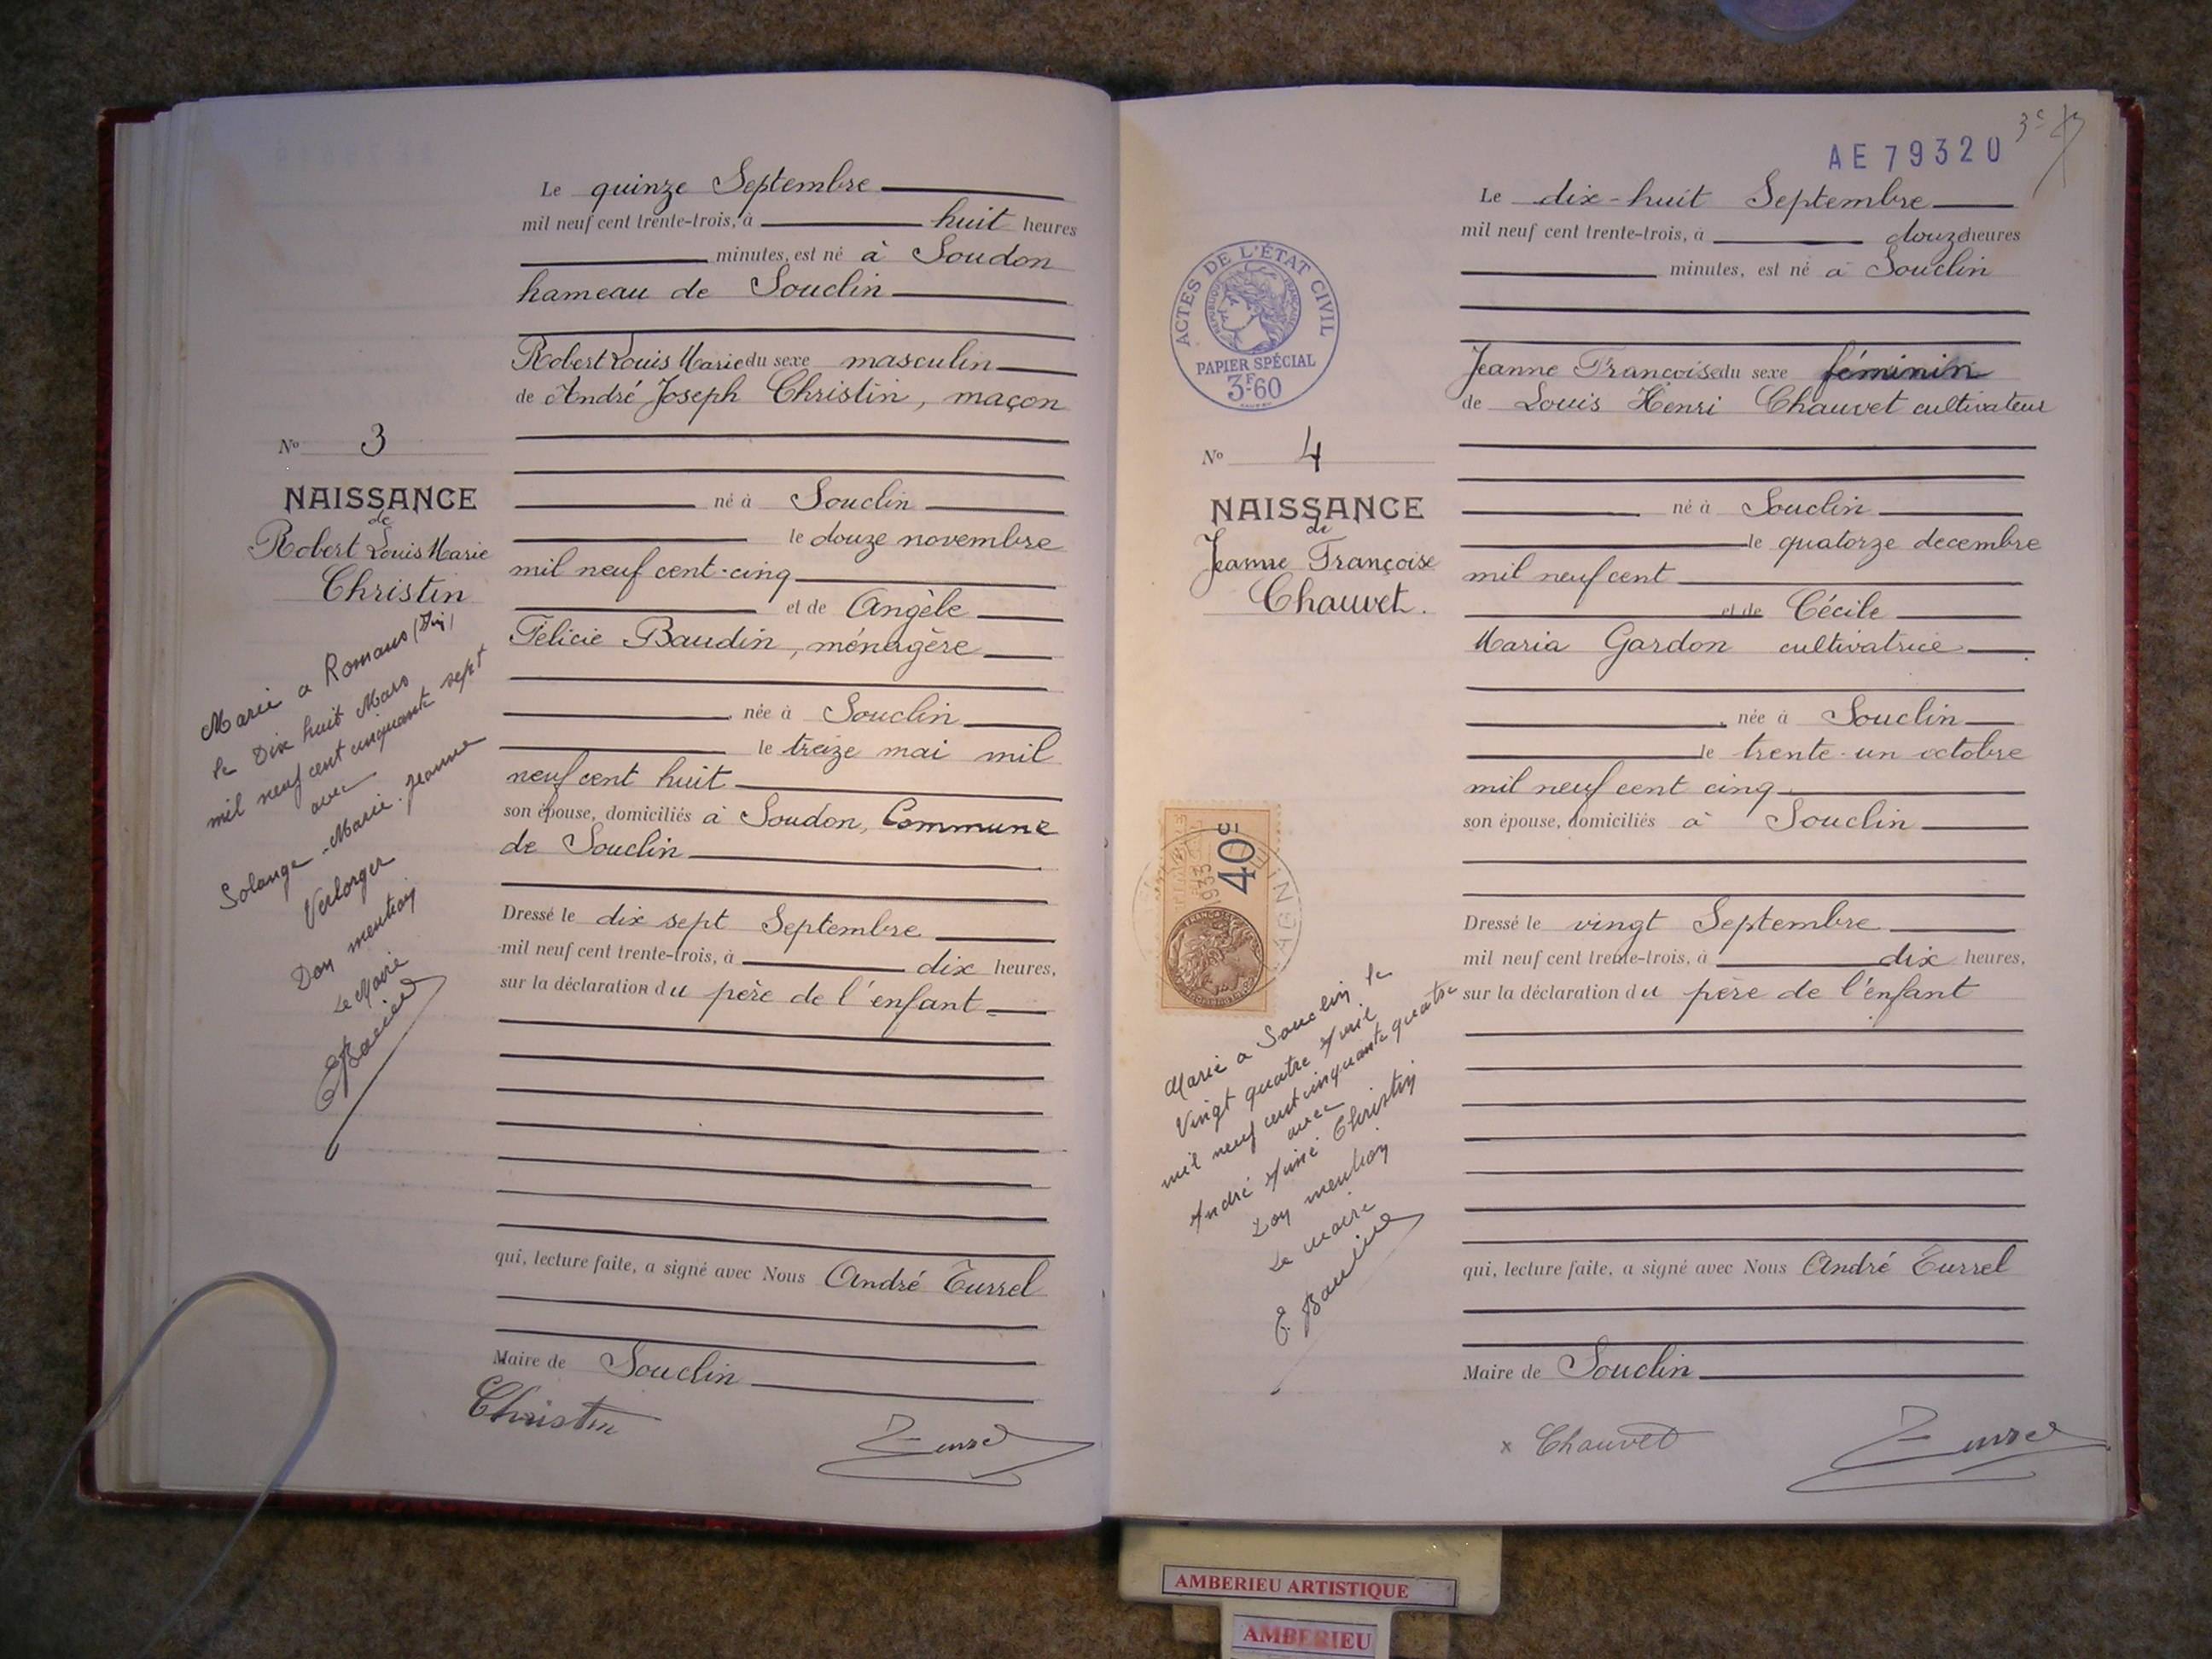 Le quinze Septembre
mil neuf cent trente-trois, à huit heures
minutes, est né à Soudon
hameau de Souclin
Robert Louis Marie du sexe masculin
de André Joseph Christin, maçon
né à Souclin
le douze novembre
mil neuf cent-cinq
et de Angèle
Félicie Baudin, ménagère
née à Souclin
le treize mai mil
neuf cent huit
son épouse, domiciliés à Soudon, Commune
de Souclin
Dressé le dix sept Septembre
mil neuf cent trente-trois, à dix heures,
sur la déclaration du père de l'enfant
qui, lecture faite, a signé avec Nous André Turrel
Maire de Souclin
Christin
Turrel
No 3
NAISSANCE
de
Robert Louis Marie
Christin
Marié a Romans
le Dix huit Mars
mil neuf cent cinquante sept
avec
Solange-Marie-Jeanne
Verlorger
Don mention
Le Maire
AE 79320
Le dix-huit Septembre
mil neuf cent trente-trois, à douze heures
minutes, est né à Souclin
Jeanne Françoise du sexe féminin
de Louis Henri Chauvet cultivateur
né à Souclin
le quatorze decembre
mil neuf cent
et de Cécile
Maria Gardon cultivatrice
née à Souclin
le trente-un octobre
mil neuf cent cinq
son épouse, domiciliés à Souclin
Dressé le vingt Septembre
mil neuf cent trente-trois, à dix heures,
sur la déclaration du père de l'enfant
qui, lecture faite, a signé avec Nous André Turrel
Maire de Souclin
x Chauvet
Turrel
ACTES DE L'ÉTAT CIVIL
RÉPUBLIQUE FRANÇAISE
PAPIER SPÉCIAL
3F60
No 4
NAISSANCE
de
Jeanne Françoise
Chauvet.
40c
1933
Marié a Souclin le
Vingt quatre Avril
mil neuf cent cinquante quatre
avec
André Aimé Christin
Don mention
Le maire
E. Baudin
AMBERIEU ARTISTIQUE
AMBERIEU